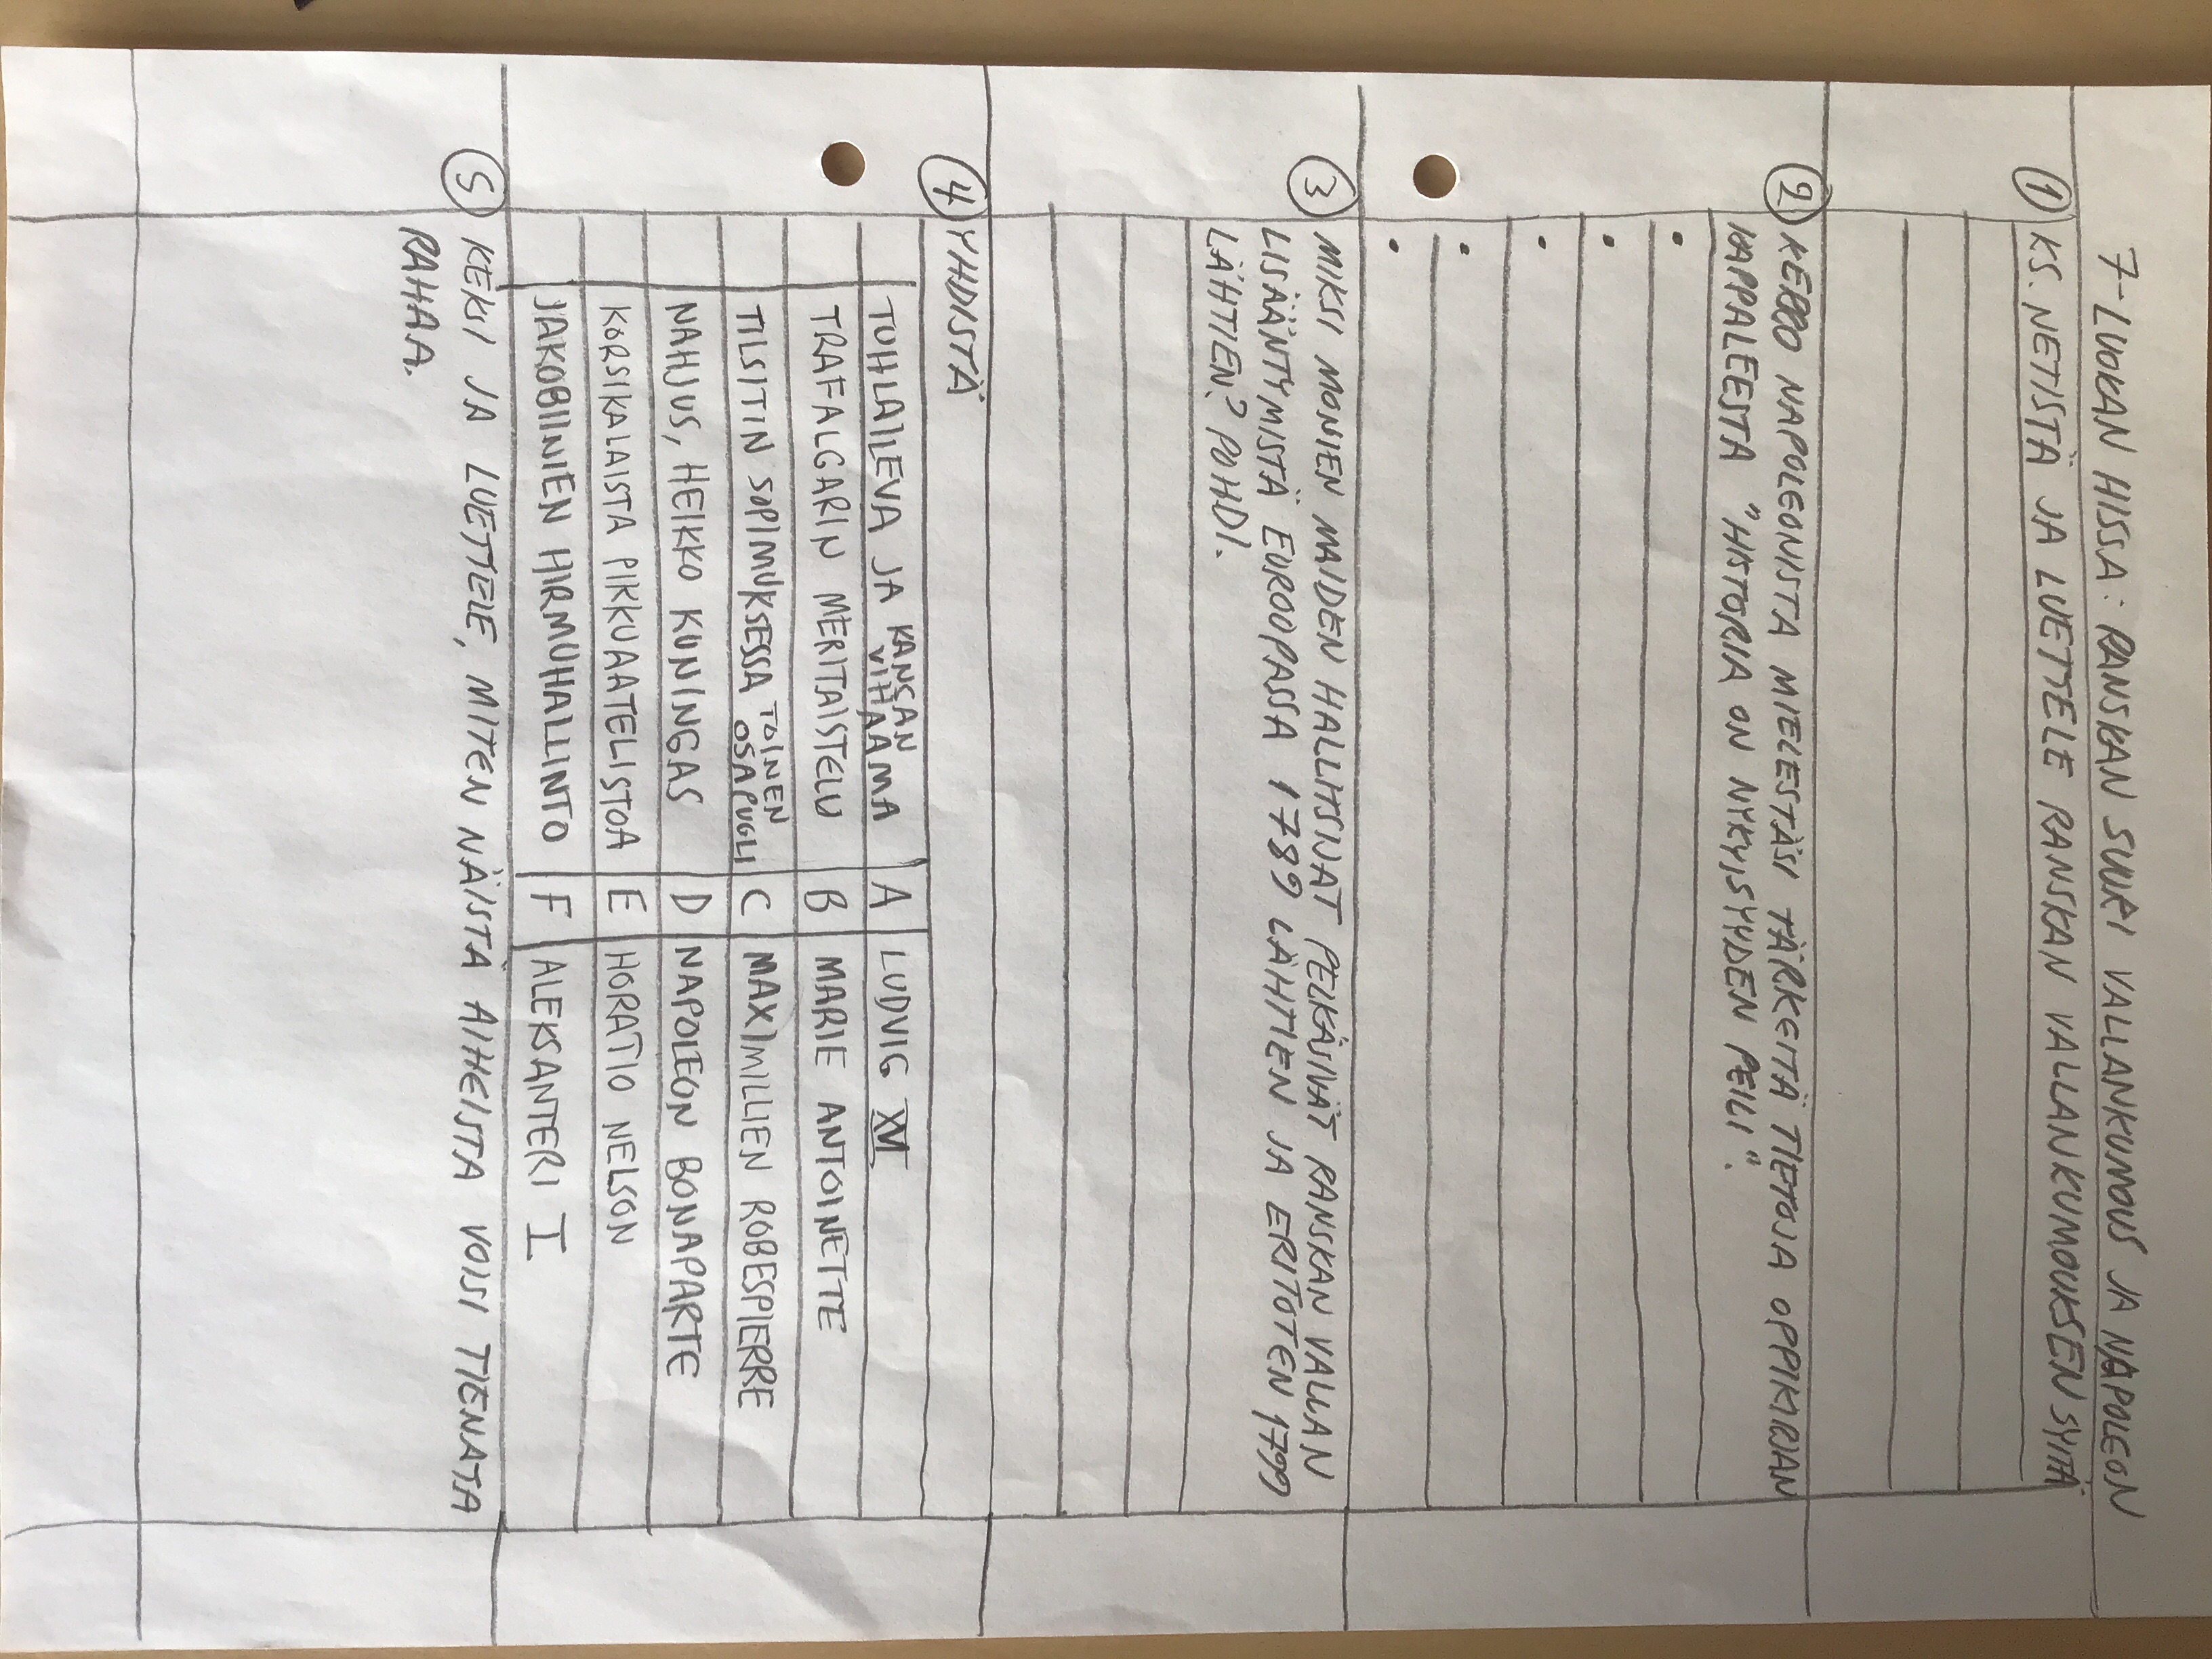 7-LUOKAN HISSA: RANSKAN SUURI VALLANKUMOUS JA NAPOLEON
① KS. NETISTÄ JA LUETTELE RANSKAN VALLANKUMOUKSEN SYITÄ
② KERRO NAPOLEONISTA MIELESTÄSI TÄRKEITÄ TIETOJA OPPIKIRJAN
KAPPALEESTA "HISTORIA ON NYKYISYYDEN PEILI".
•
•
•
•
•
③ MIKSI MONIEN MAIDEN HALLITSIJAT PELKÄSIVÄT RANSKAN VALLAN
LISÄÄNTYMISTÄ EUROOPASSA 1789 LÄHTIEN JA ERITOTEN 1799
LÄHTIEN? POHDI.
④ YHDISTÄ
TUHLAILEVA JA KANSAN VIHAAMA A LUDVIG XVI
TRAFALGARIN MERITAISTELU B MARIE ANTOINETTE
TILSITIN SOPIMUKSESSA TOINEN OSAPUOLI C MAXIMILLIEN ROBESPIERRE
NAHJUS, HEIKKO KUNINGAS D NAPOLEON BONAPARTE
KORSIKALAISTA PIKKUAATELISTOA E HORATIO NELSON
JAKOBIINIEN HIRMUHALLINTO F ALEKSANTERI I
⑤ KEKSI JA LUETTELE, MITEN NÄISTÄ AIHEISTA VOISI TIENATA
RAHAA.